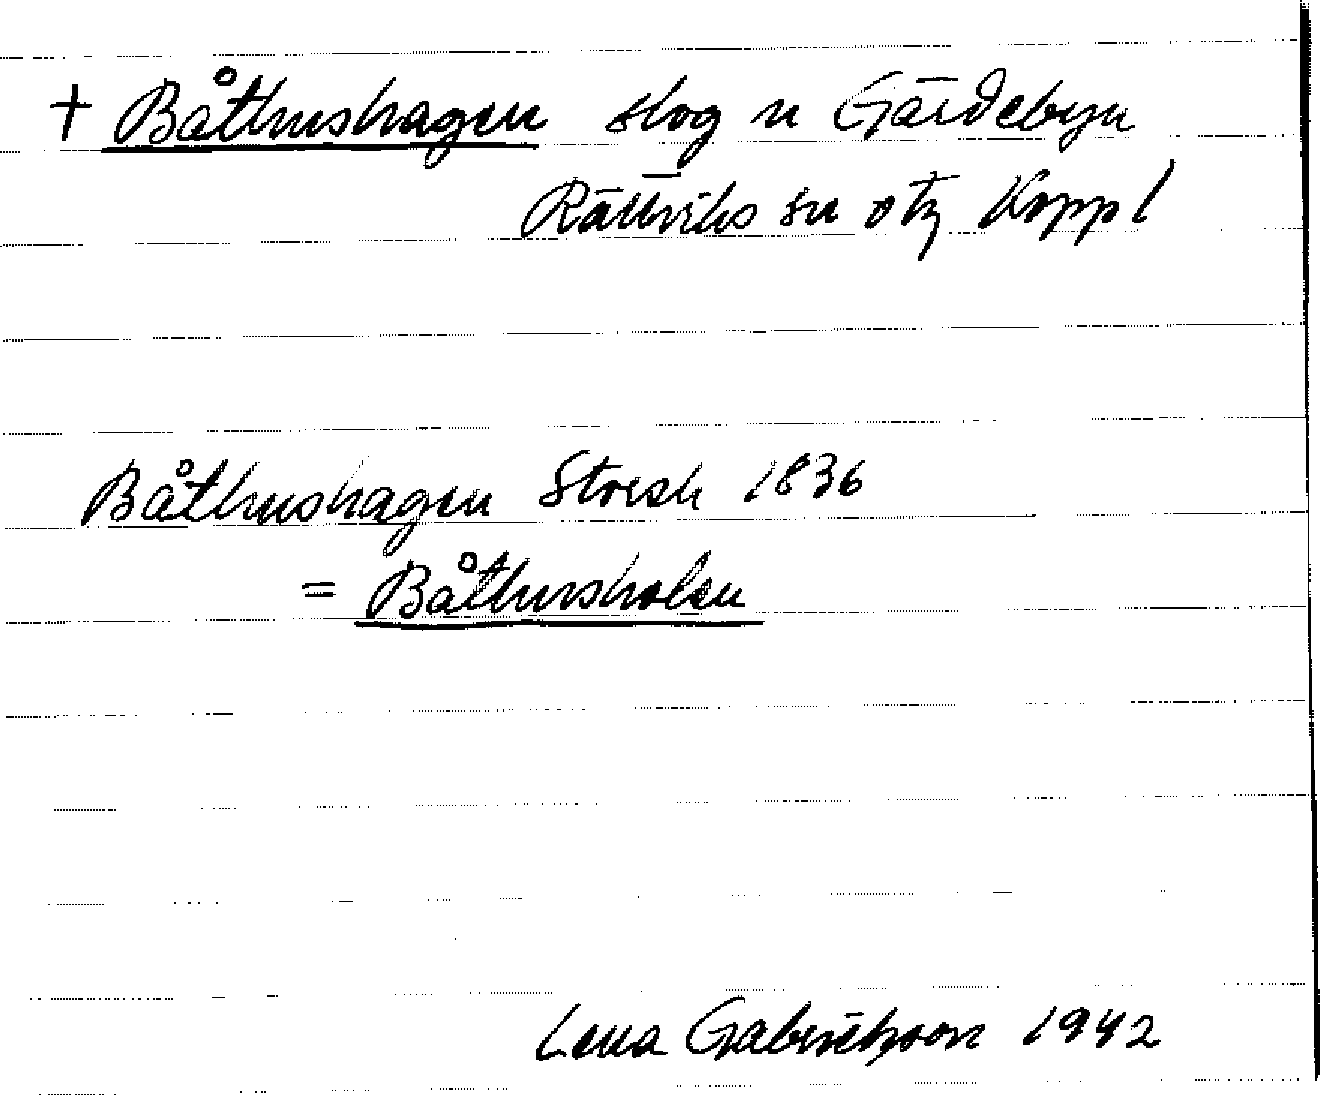 + Båthushagen skog n Gärdebyn
Rättviks sn Kopp l
Båthushagen Storsk 1836
= Båthusholen
Lena Gabrielsson 1942